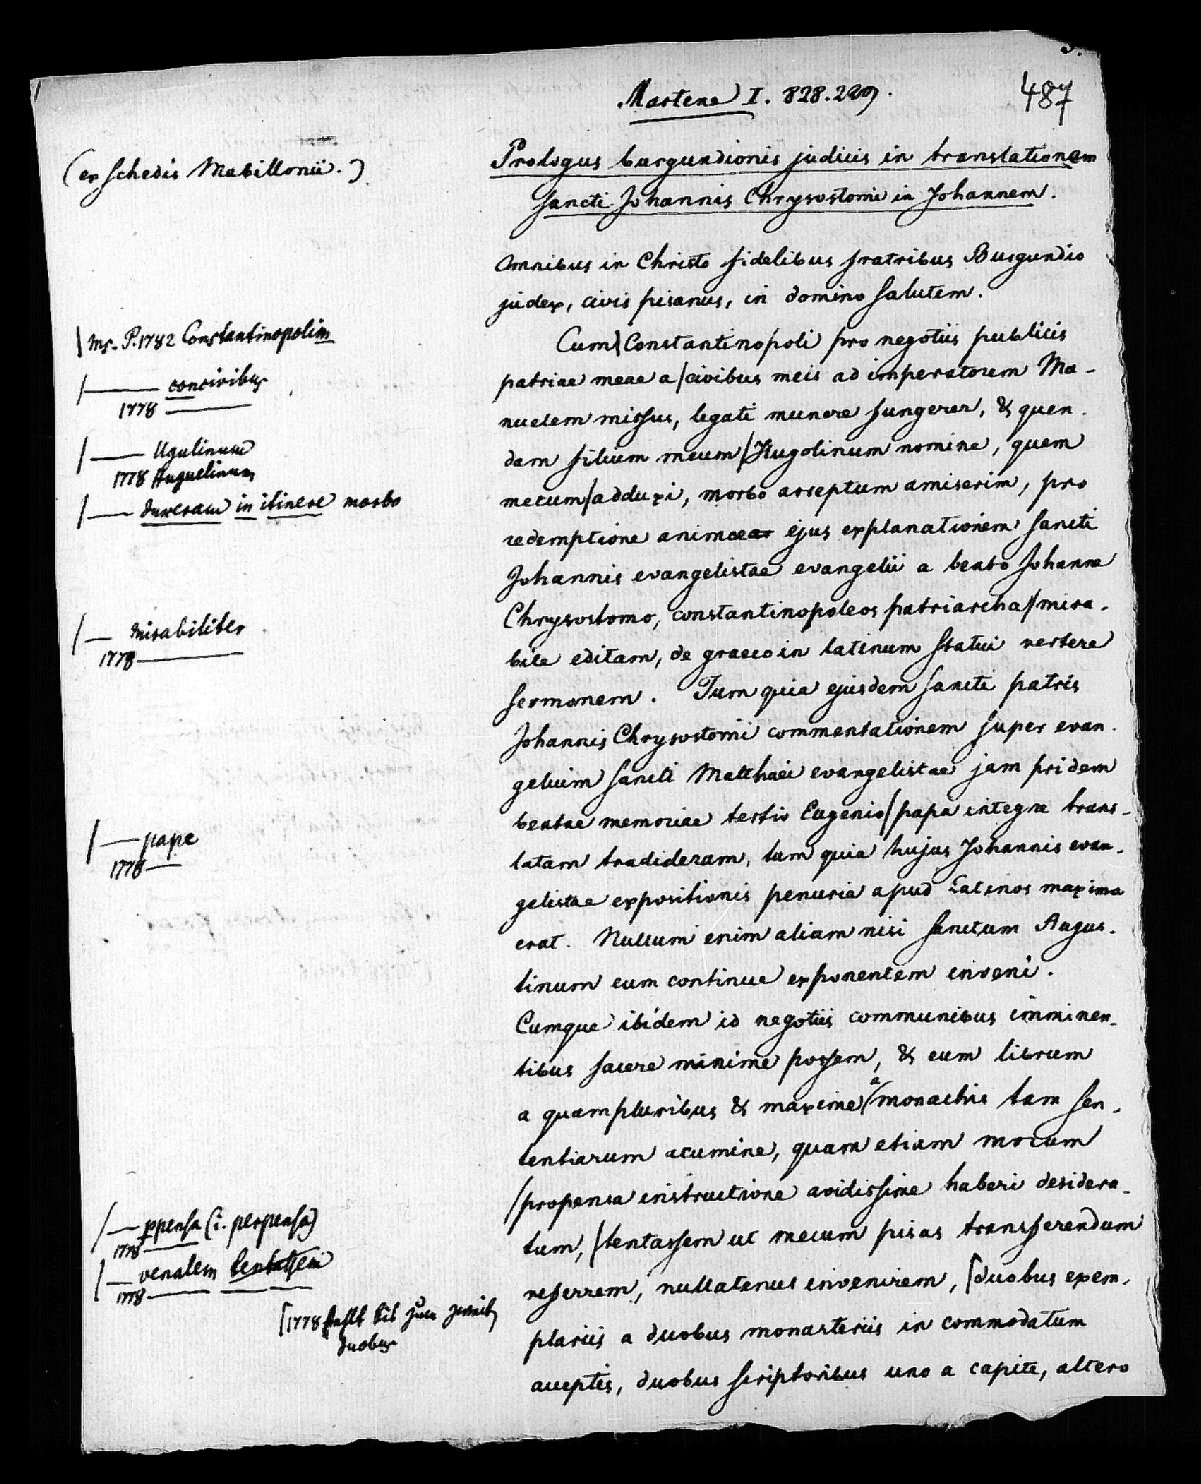 487
Martene I. 828.
(ex schedis Mabillonii.)
Prologus burgundionis judicis in translationem
sancti Johannis Chrysostomi in Johannem.
Omnibus in Christo fidelibus fratribus Burgundio
judex, civis pisanus, in domino salutem.
| ms. P. 1782 Constantinopolim
Cum| Constantinopoli pro negotiis publicis
/— concivibus
1778 —
patriae meae a /civibus meis ad imperatorem Ma-
nuelem missus, legati munere fungerer, & quen-
/— Ugulinum
1778 Huguelinum
dam filium meum /Hugolinum nomine, quem
/— duxeram in itinere morbo
mecum /adduxi, morbo arreptum amiserim, pro
redemptione animae ejus explanationem sancti
Johannis evangelistae evangelii a beato Johanne
/— mirabiliter
1778 —
Chrysostomo, constantinopoleos patriarcha /mira-
bile editam, de graeco in latinum statui vertere
sermonem. Tum quia ejusdem sancti patris
Johannis Chrysostomi commentationem super evan-
gelium sancti Matthaei evangelistae jam pridem
/— pape
1778 —
beatae memoriae tertio Eugenio /papa integre trans-
latam tradideram, tum quia hujus Johannis evan-
gelistae expositionis penuria apud Latinos maxima
erat. Nullum enim alium nisi sanctum Augus-
tinum eum continue exponentem inveni.
Cumque ibidem id negotiis communibus imminen-
tibus facere minime possem, & eum librum
a quampluribus & maxime a monachis tam sen-
tentiarum acumine, quam etiam morum
/— ppensa (i. perpensa)
1778 —
/propensa instructione avidissime haberi desidera-
/— venalem tentassem
1778 —
tum, /tentassem ut mecum pisas transferendum
referrem, nullatenus invenirem, ⌈duobus exem-
⌈1778 fehlt bis zum
duobus
plariis a duobus monasteriis in commodatum
acceptis, duobus scriptoribus uno a capite, altero